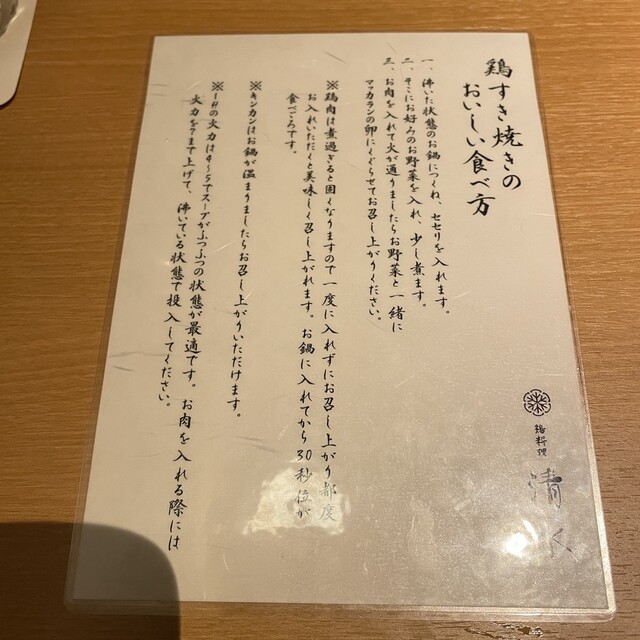 鶏すき焼きの
おいしい食べ方
一、沸いた状態のお鍋につくね、セセリを入れます。
二、そこにお好みのお野菜を入れ、少し煮ます。
三、お肉を入れて火が通りましたらお野菜と一緒に
マッカランの卵にくぐらせてお召し上がりください。
※鶏肉は煮過ぎると固くなりますので一度に入れずにお召し上がり都度
お入れいただくと美味しく召し上がれます。お鍋に入れてから30秒位が
食べごろです。
※キンカンはお鍋が温まりましたらお召し上がりいただけます。
※IHの火力は4~5でスープがふつふつの状態が最適です。お肉を入れる際には
火力を7まで上げて、沸いている状態で投入してください。
鶏料理